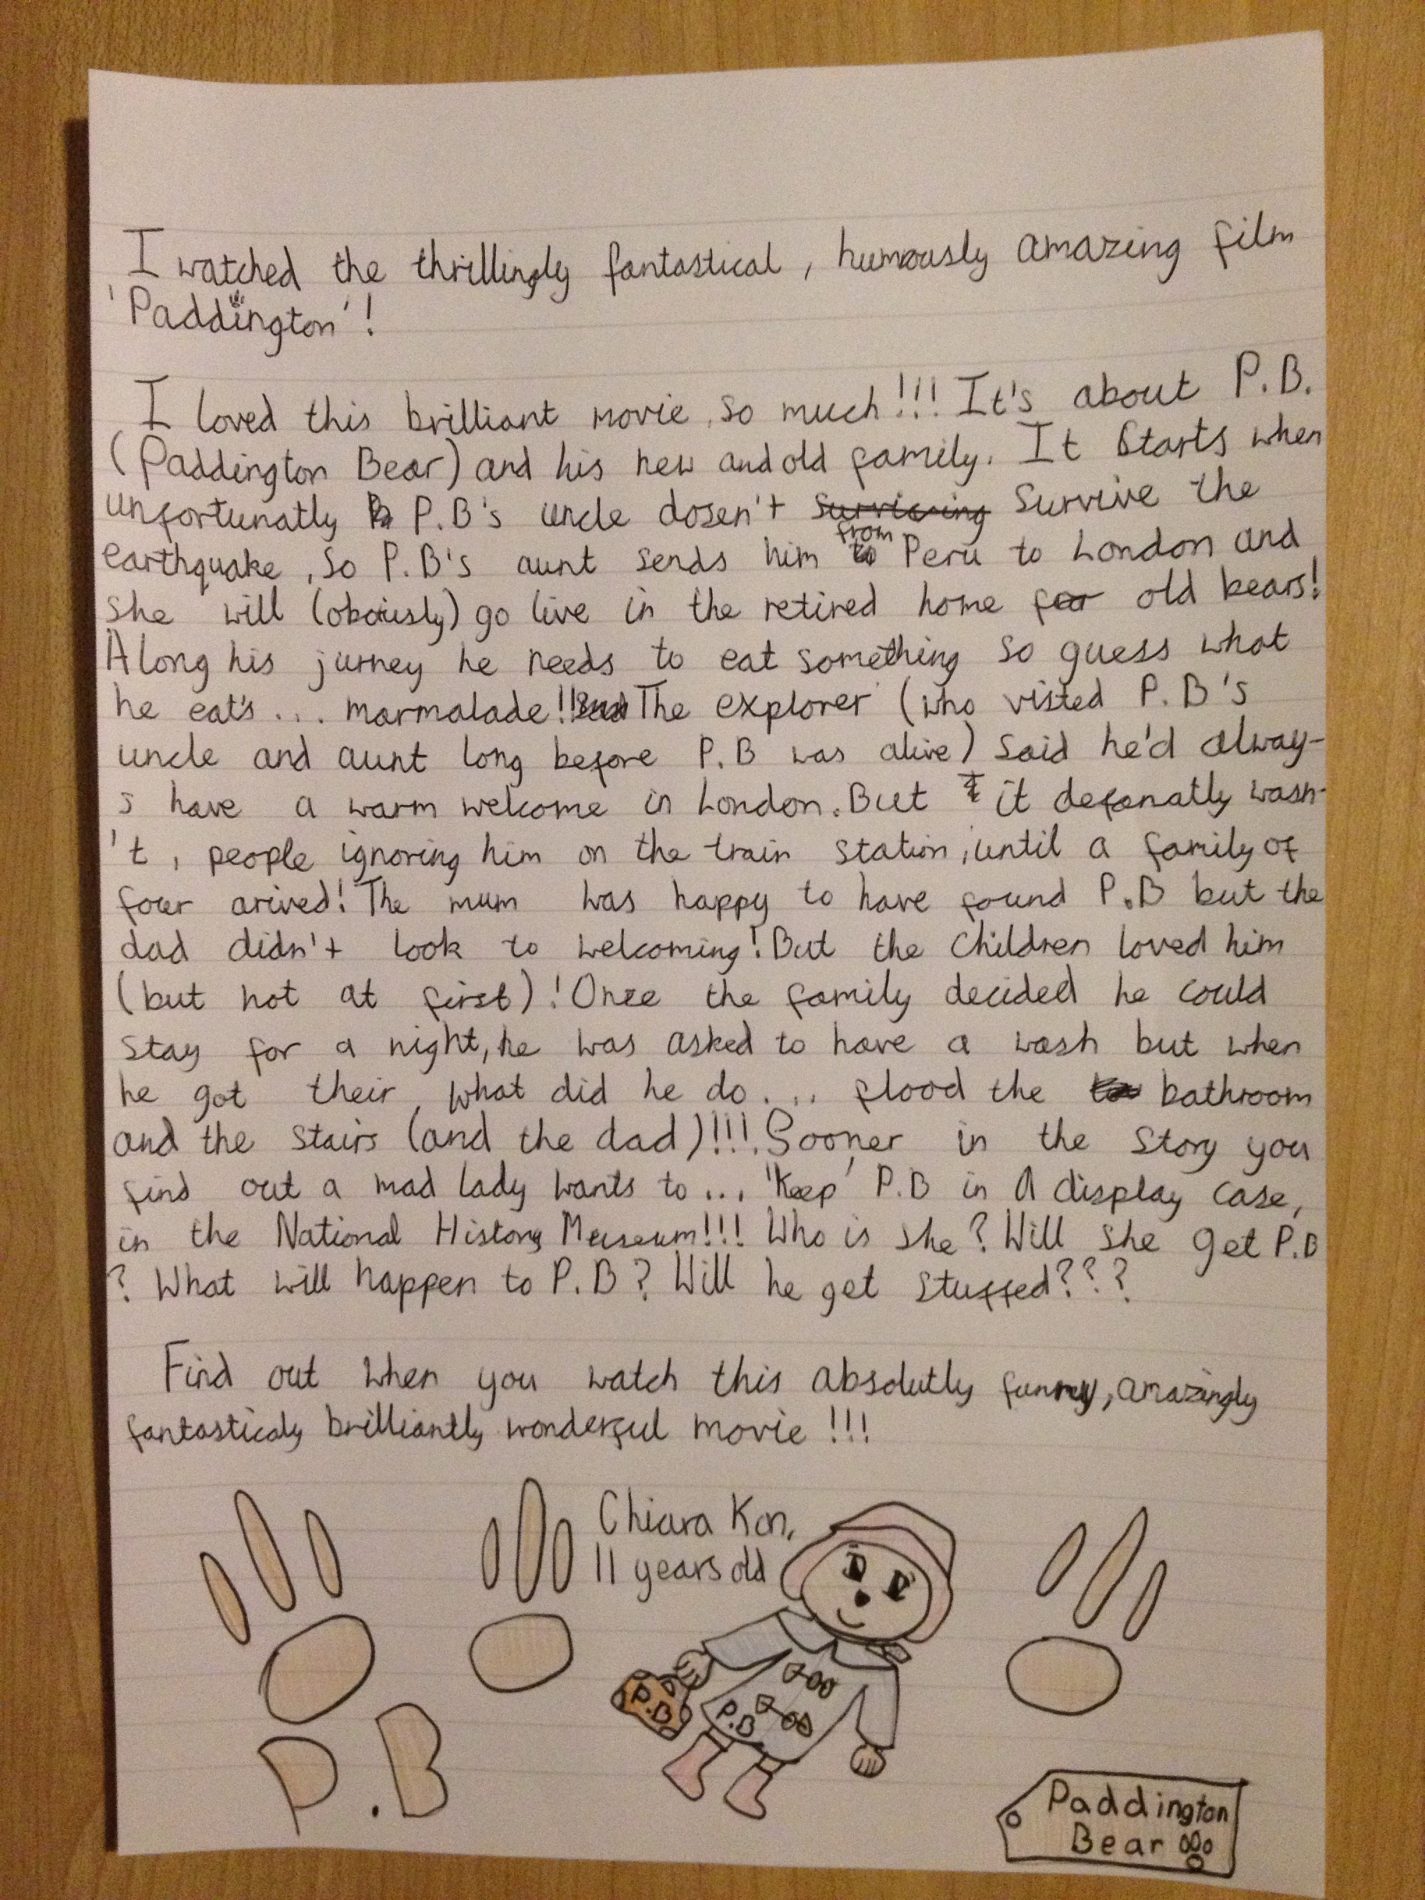 I watched the thrillingly fantastical, humously amazing film
'Paddington'!
I loved this brilliant movie so much!!! It's about P.B.
(Paddington Bear) and his new and old family. It starts when
unfortunatly P.B's uncle dosen't surviving survive the
earthquake, so P.B's aunt sends him from Peru to London and
she will (obviusly) go live in the retired home for old bears!
Along his jurney he needs to eat something so guess what
he eat's... marmalade!! The explorer (who visted P.B's
uncle and aunt long before P.B was alive) said he'd alway-
s have a warm welcome in London. But it defanatly wasn-
't, people ignoring him on the train station, until a family of
four arived! The mum was happy to have found P.B but the
dad didn't look to welcoming! But the children loved him
(but not at first)! Once the family decided he could
stay for a night, he was asked to have a wash but when
he got their, what did he do.... flood the bathroom
and the stairs (and the dad)!!!. Sooner in the story you
find out a mad lady wants to... 'keep' P.B in a display case,
in the National History Museum!!! Who is she? Will she get P.B
? What will happen to P.B? Will he get stuffed???
Find out when you watch this absolutly funny, amazingly
fantasticaly brilliantly wonderful movie!!!
Chiara Kon,
11 years old
P.B
P.B
P.B
Paddington
Bear